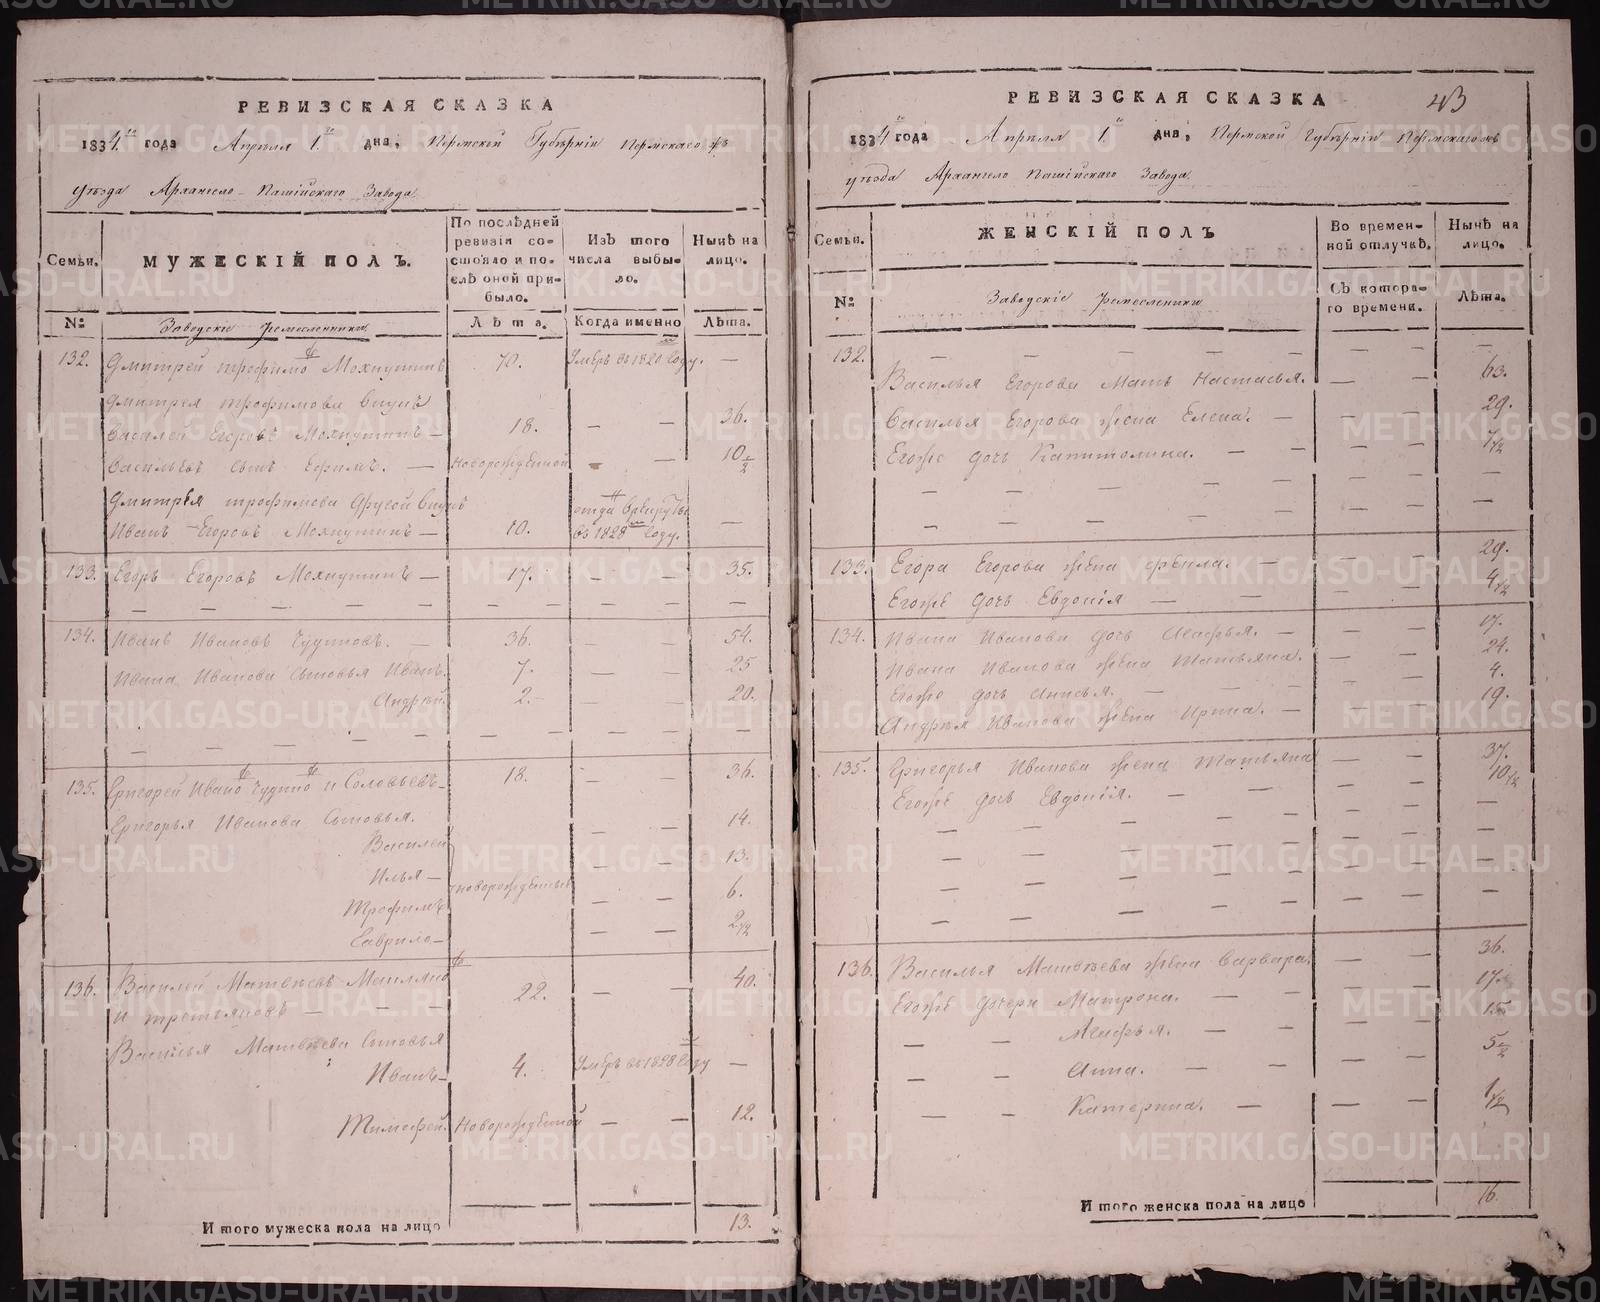 РЕВИЗСКАЯ СКАЗКА
1834 года Апреля 1 дна, Пермской Губерніи Пермскаго
уѣзда Архангело-Пашійскаго Завода
Семьи.
МУЖЕСКІЙ ПОЛЪ.
По послѣдней ревизіи состояло и послѣ оной прибыло.
Изъ того числа выбыло.
Нынѣ на лицо.
№
Заводскіе ремесленники
Лѣта.
Когда именно
Лѣта.
132. Дмитрей Трофимо Мохнуткинъ 70. Умеръ въ 1820 году. —
Дмитрея Трофимова внукъ
Василей Егоровъ — 18. — — 36.
Васильевъ сынъ Ефимъ. — Новорожденной — 10 1/2
Дмитрея Трофимова другой внукъ
Иванъ Егоровъ — 10. отдан в рекруты въ 1828 году. —
133. Егоръ Егоровъ — 17. — — 35.
134. Иванъ Ивановъ Чудиновъ. — 36. — — 54.
Ивана Иванова сыновья Иванъ. 7. — — 25
Андрей. 2. — — 20.
135. Григорей Ивано Чудино и Соловьевъ 18. — — 36.
Григорья Иванова сыновья.
Василей — — 14.
Илья — новорожденные — — 13.
Трофимъ — — 6.
Гаврило — — — 2 1/2
136. Василей Матвеевъ
и Третьяковъ — 22. — — 40.
Василья Матвеева сыновья
Иванъ — 4. Умеръ въ 1828 году —
Тимофей. Новорожденной — — 12.
Итого мужеска пола на лицо 13.
РЕВИЗСКАЯ СКАЗКА 43
1834 года Апреля 1 дна, Пермской Губерніи Пермскаго
уѣзда Архангело Пашійскаго Завода
Семьи.
ЖЕНСКІЙ ПОЛЪ
Во временной отлучкѣ.
Нынѣ на лицо.
№
Заводскіе ремесленники
Съ котораго времени.
Лѣта.
132. — — — — —
Василья Егорова мать Настасья. — — 63.
Василья Егорова жена Елена. — — — 29.
Егоже дочь Капитолина. — — — 7 1/2
133. Егора Егорова жена — — — 29.
Егоже дочь Евдокія — — — 4 1/2
134. Ивана Иванова дочь Агафья. — — — 17.
Ивана Иванова жена Татьяна. — — 24.
Егоже дочь Анисья. — — — 4.
Андрея Иванова жена Ирина. — — — 19.
135. Григорья Иванова жена Татьяна — — 37.
Егоже дочь Евдокія. — — — 10 1/2
136. Василья Матвеева жена Варвара. — — 36.
Егоже дочери Матрона. — — — 17.
— — Агафья. — — — 15
— — Анна. — — — 5 1/2
— — Катерина. — — — 1 1/2
Итого женска пола на лицо 16.
METRIKI.GASO-URAL.RU